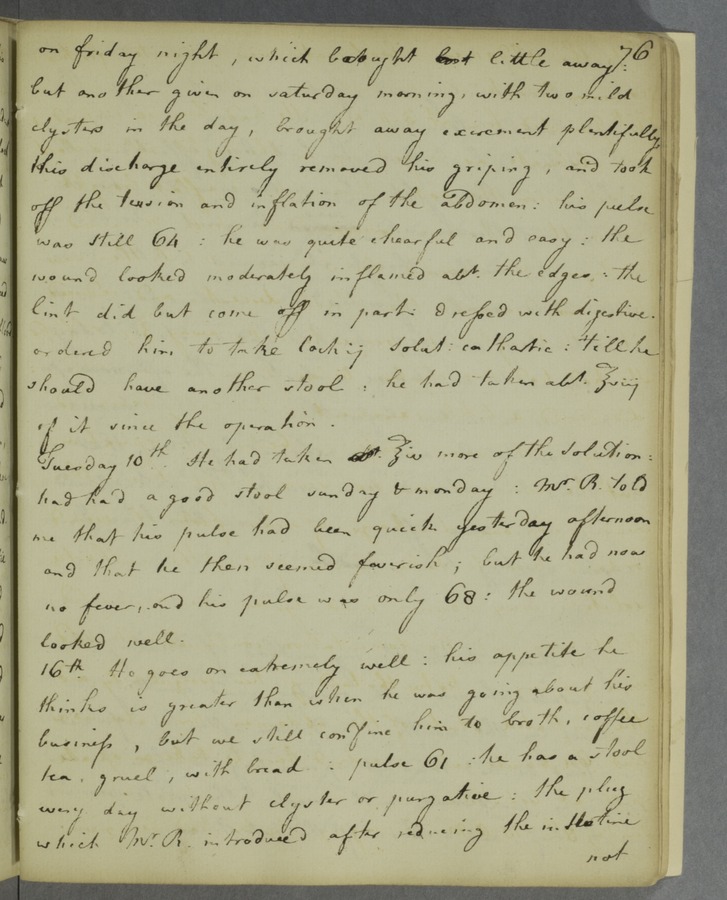 76
on friday night, which brought but little away:
but another given on saturday morning, with two mild
clysters in the day, brought away excrement plentifully,
this discharge entirely removed his griping, and took
off the tension and inflation of the abdomen: his pulse
was still 64: he was quite chearful and easy: the
wound looked moderately inflamed abt. the edges: the
lint did but come off in part: dressed with digestive.
ordered him to take Coch ij solut: cathartic: till he
should have another stool: he had taken abt. ℥viij
of it since the operation.
Tuesday 10th He had taken ℥iv more of the solution:
had had a good stool sunday & monday: Mr. R. told
me that his pulse had been quick yesterday afternoon
and that he then seemed feverish; but he had now
no fever, and his pulse was only 68: the wound
looked well.
16th. He goes on extremely well: his appetite he
thinks is greater than when he was going about his
business, but we still confine him to broth, coffee
tea, gruel, with bread: pulse 61: he has a stool
every day without clyster or purgative: the plug
which Mr. R. introduced after reducing the intestine
not